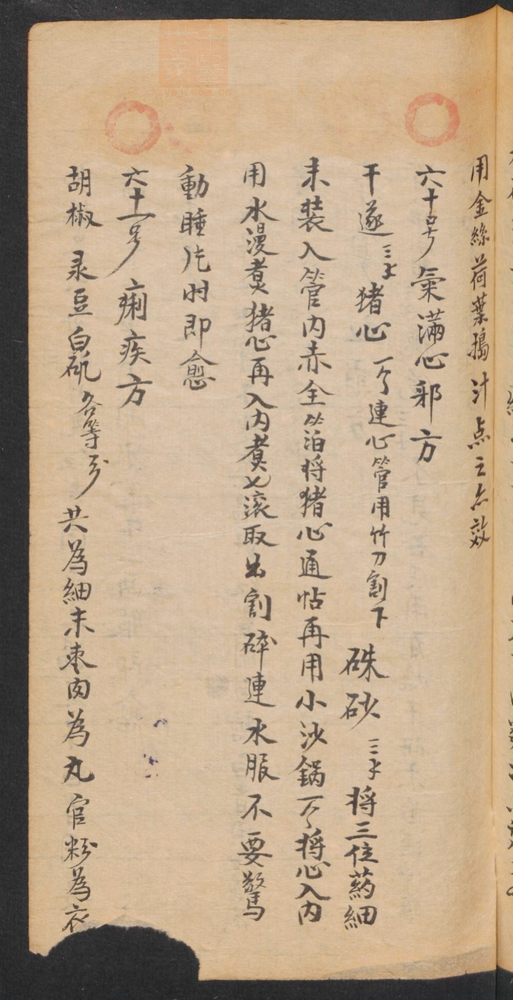 用金絲荷葉搗汁点之亦效
六十号 氣滿心邪方
干遂三个 猪心一个連心管用竹刀割下 硃砂三个 将三位葯細
末装入管内赤金箔将猪心通帖再用小沙鍋一个将心入内
用水漫煮猪心再入内煮七滚取出割碎連水服不要驚
動睡片时即愈
六十一号 痢疾方
胡椒 彔豆 白矾各等分 共為細末枣肉為丸官粉為衣